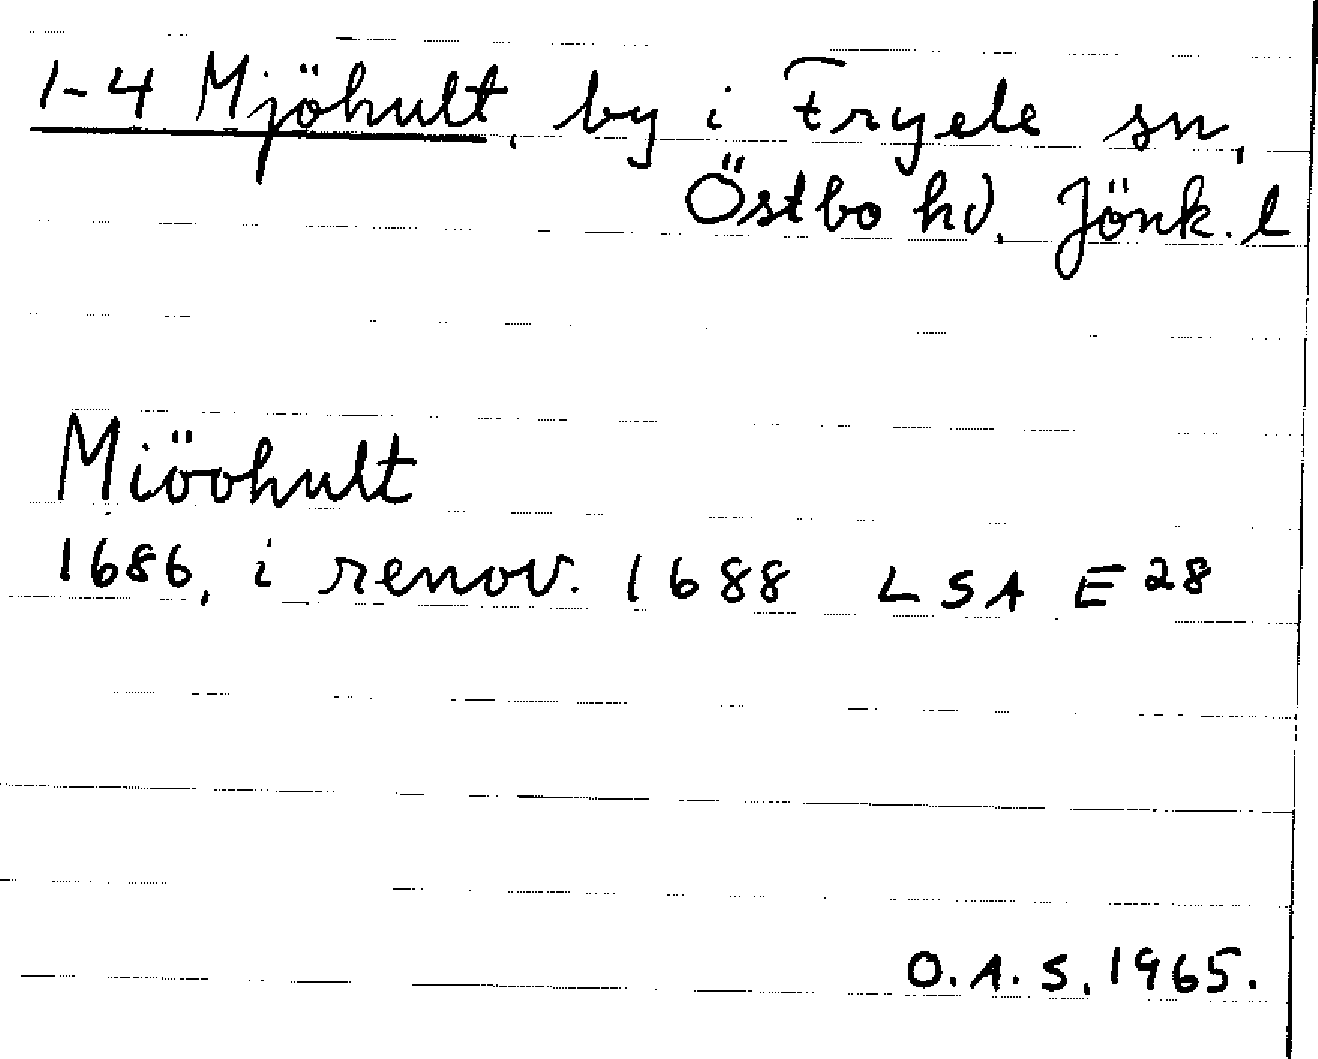 1-4 Mjöhult, by i Fryele sn,
Östbo hd. Jönk. l
Miöohult
1686, i renov. 1688 LSA E 28
O.A.S. 1965.